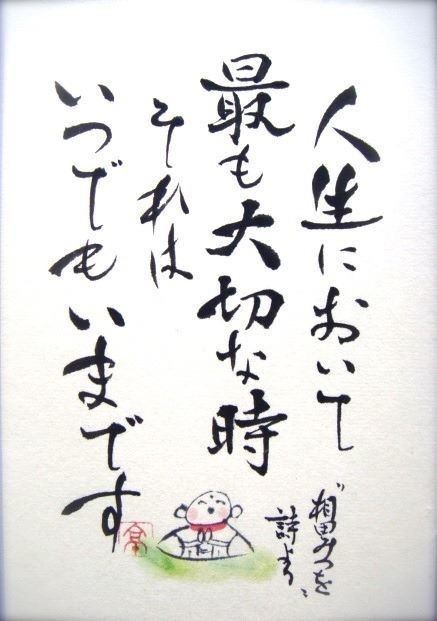 人生において
最も大切な時
それは
いつでもいまです
"相田みつを
詩より"